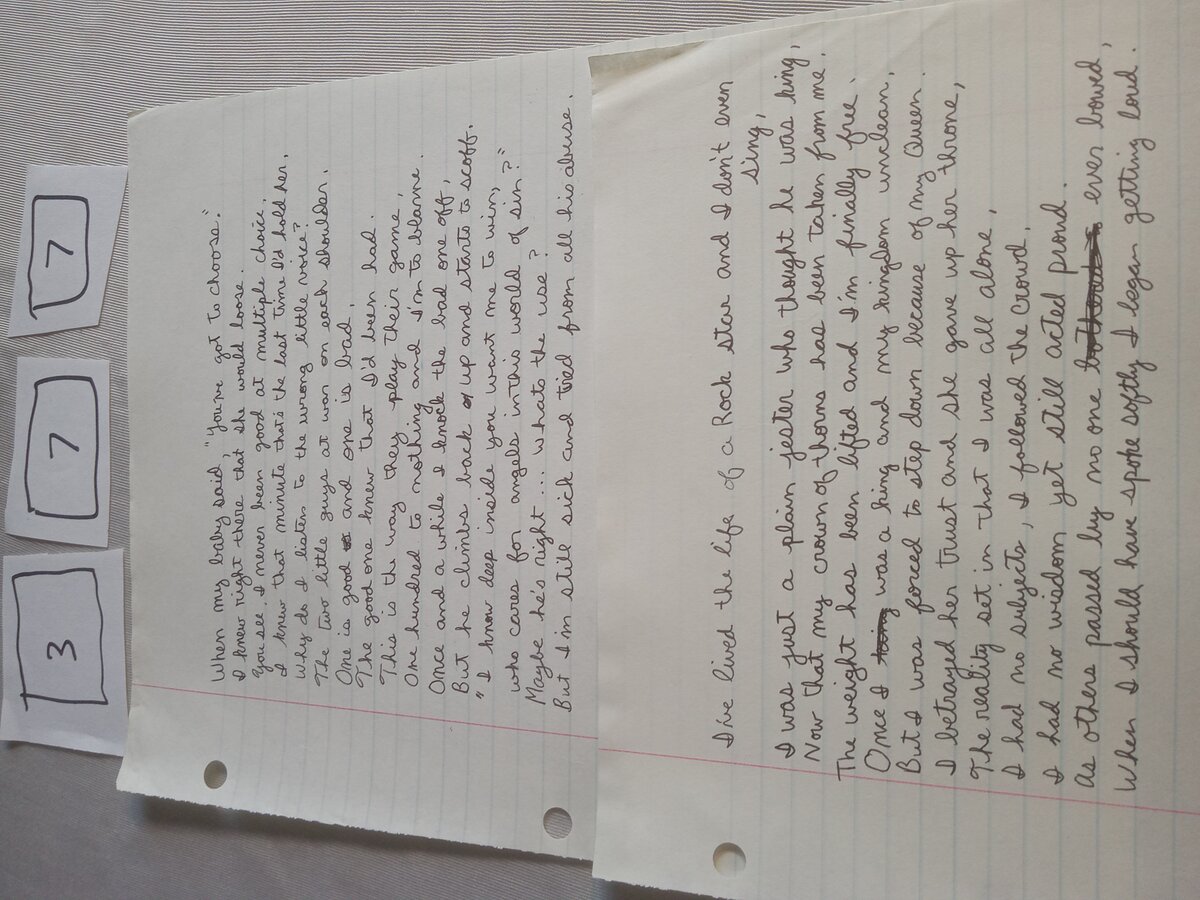 3
7
7
When my baby said, "you've got to choose."
I knew right there that she would loose.
You see, I never been good at multiple choice.
I knew that minute that's the last time I'd hold her.
Why do I listen to the wrong little voice?
The two little guys at war on each shoulder.
One is good and one is bad.
The good one knew that I'd been had.
This is the way they play their game,
One hundred to nothing and I'm to blame.
Once and a while I knock the bad one off,
But he climbs back up and starts to scoff.
"I know deep inside you want me to win,
who cares for angels in this world of sin?"
Maybe he's right... whats the use?
But I'm still sick and tied from all his abuse.
I've lived the life of a Rock star and I don't even
sing,
I was just a plain jester who thought he was king,
Now that my crown of thorns has been taken from me.
The weight has been lifted and I'm finally free.
Once I was a king and my kingdom unclean,
But I was forced to step down because of my Queen.
I betrayed her trust and she gave up her throne,
The reality set in that I was all alone,
I had no subjects, I followed the crowd,
I had no wisdom yet still acted proud.
As others passed by no one ever bowed,
When I should have spoke softly I began getting loud.